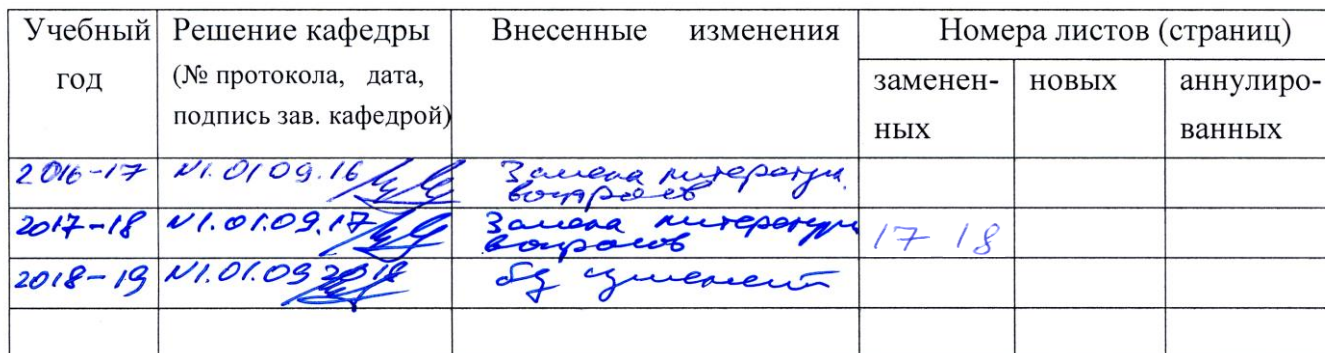 Учебный год Решение кафедры (№ протокола, дата, подпись зав. кафедрой) Внесенные изменения Номера листов (страниц)
заменен-ных новых аннулиро-ванных
2016-17 N1. 01 09. 16 Замена литератур.
вопросов
2017-18 N1. 01.09.17 Замена литературы 17 18
вопросов
2018-19 N1. 01.09 2018 без изменений